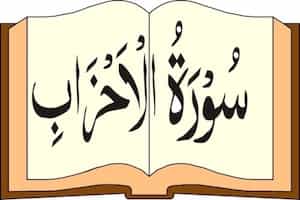 سُورَةُ الْأَحْزَابِ